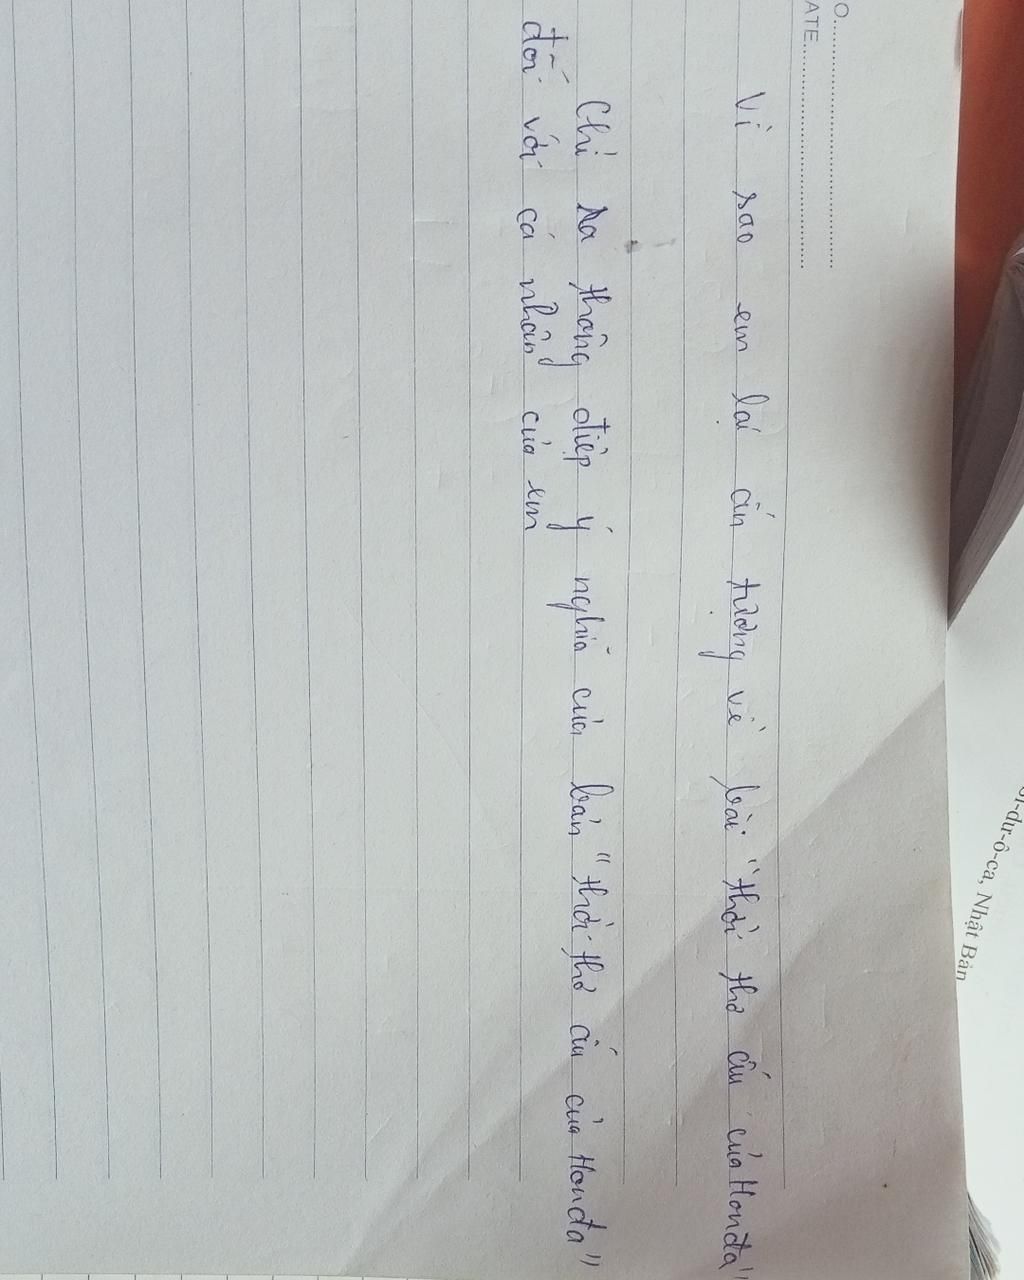 O..............................
ATE..............................
Vì sao em lại ấn tượng về bài "thời thơ ấu của Honđa"
Chỉ ra thông điệp ý nghĩa của bản "thời thơ ấu của Honđa"
đối với cá nhân của em
ôt-dư-ô-ca, Nhật Bản